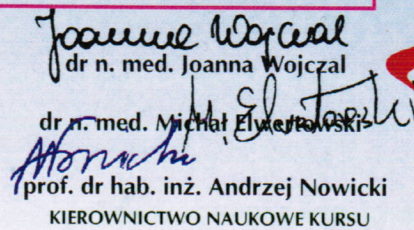 Joanna Wojczal
dr n. med. Joanna Wojczal
dr n. med. Michał Elwertowski
M. Elwertowski
A. Nowicki
prof. dr hab. inż. Andrzej Nowicki
KIEROWNICTWO NAUKOWE KURSU